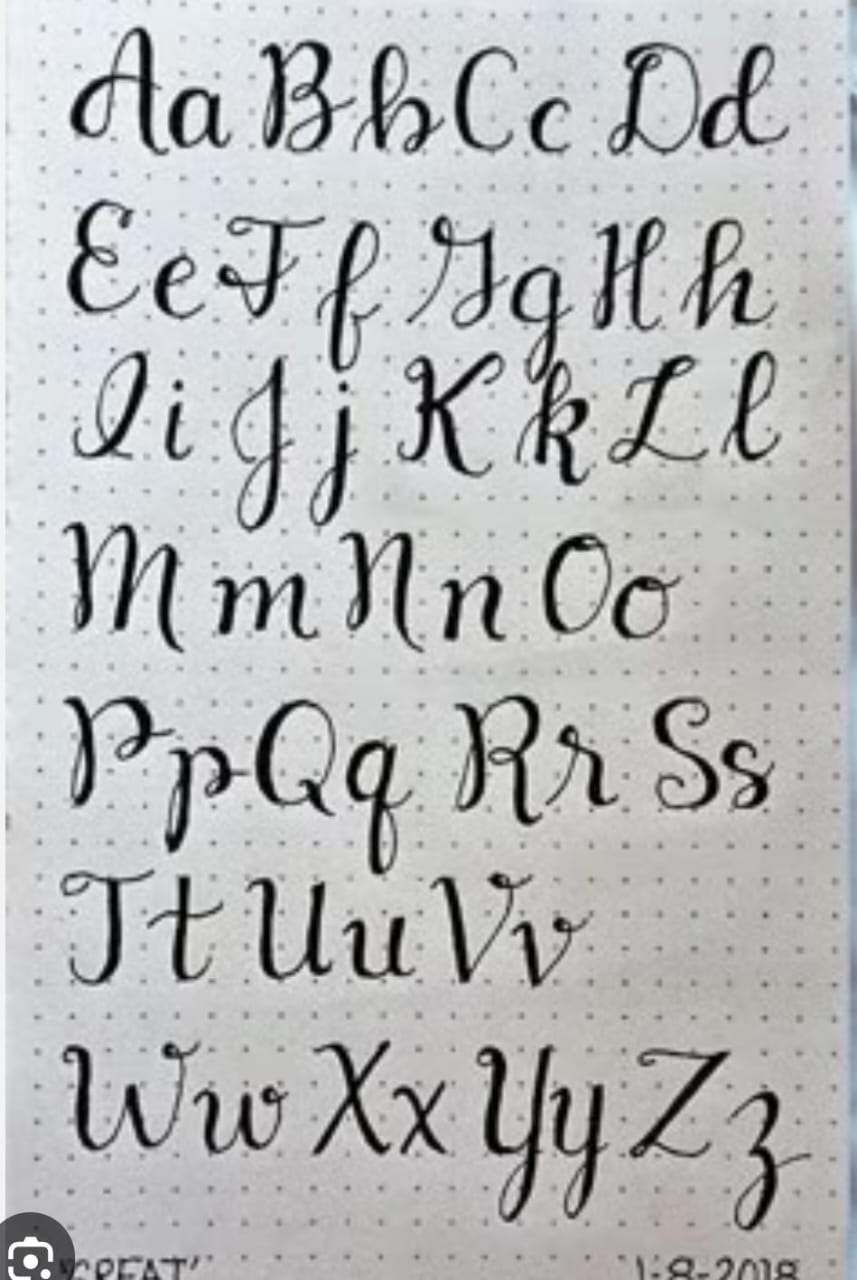 Aa Bb Cc Dd
Ee Ff Gg Hh
Ii Jj Kk Ll
Mm Nn Oo
Pp Qq Rr Ss
Tt Uu Vv
Ww Xx Yy Zz
1-8-2018